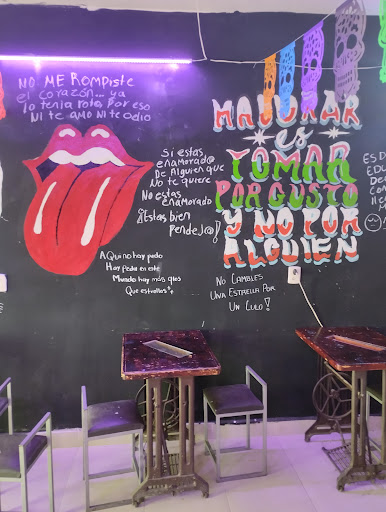 NO ME ROMPiste
el corazón... ya
lo tenia roto, Por eso
Ni te amo Ni te odio
Si estas
enamorad@
De Alguien que
No te quiere
No estas
enamorado
¡Estas bien
pendej@!
AQui no hay pedo
Hay peda en este
Mundo hay más q los
Que estrellas
MADURAR
es
TOMAR
POR GUSTO
Y NO POR
ALGUIEN
NO CAMBiES
UNA ESTRELLA POR
UN CULO!
ES D
EDU